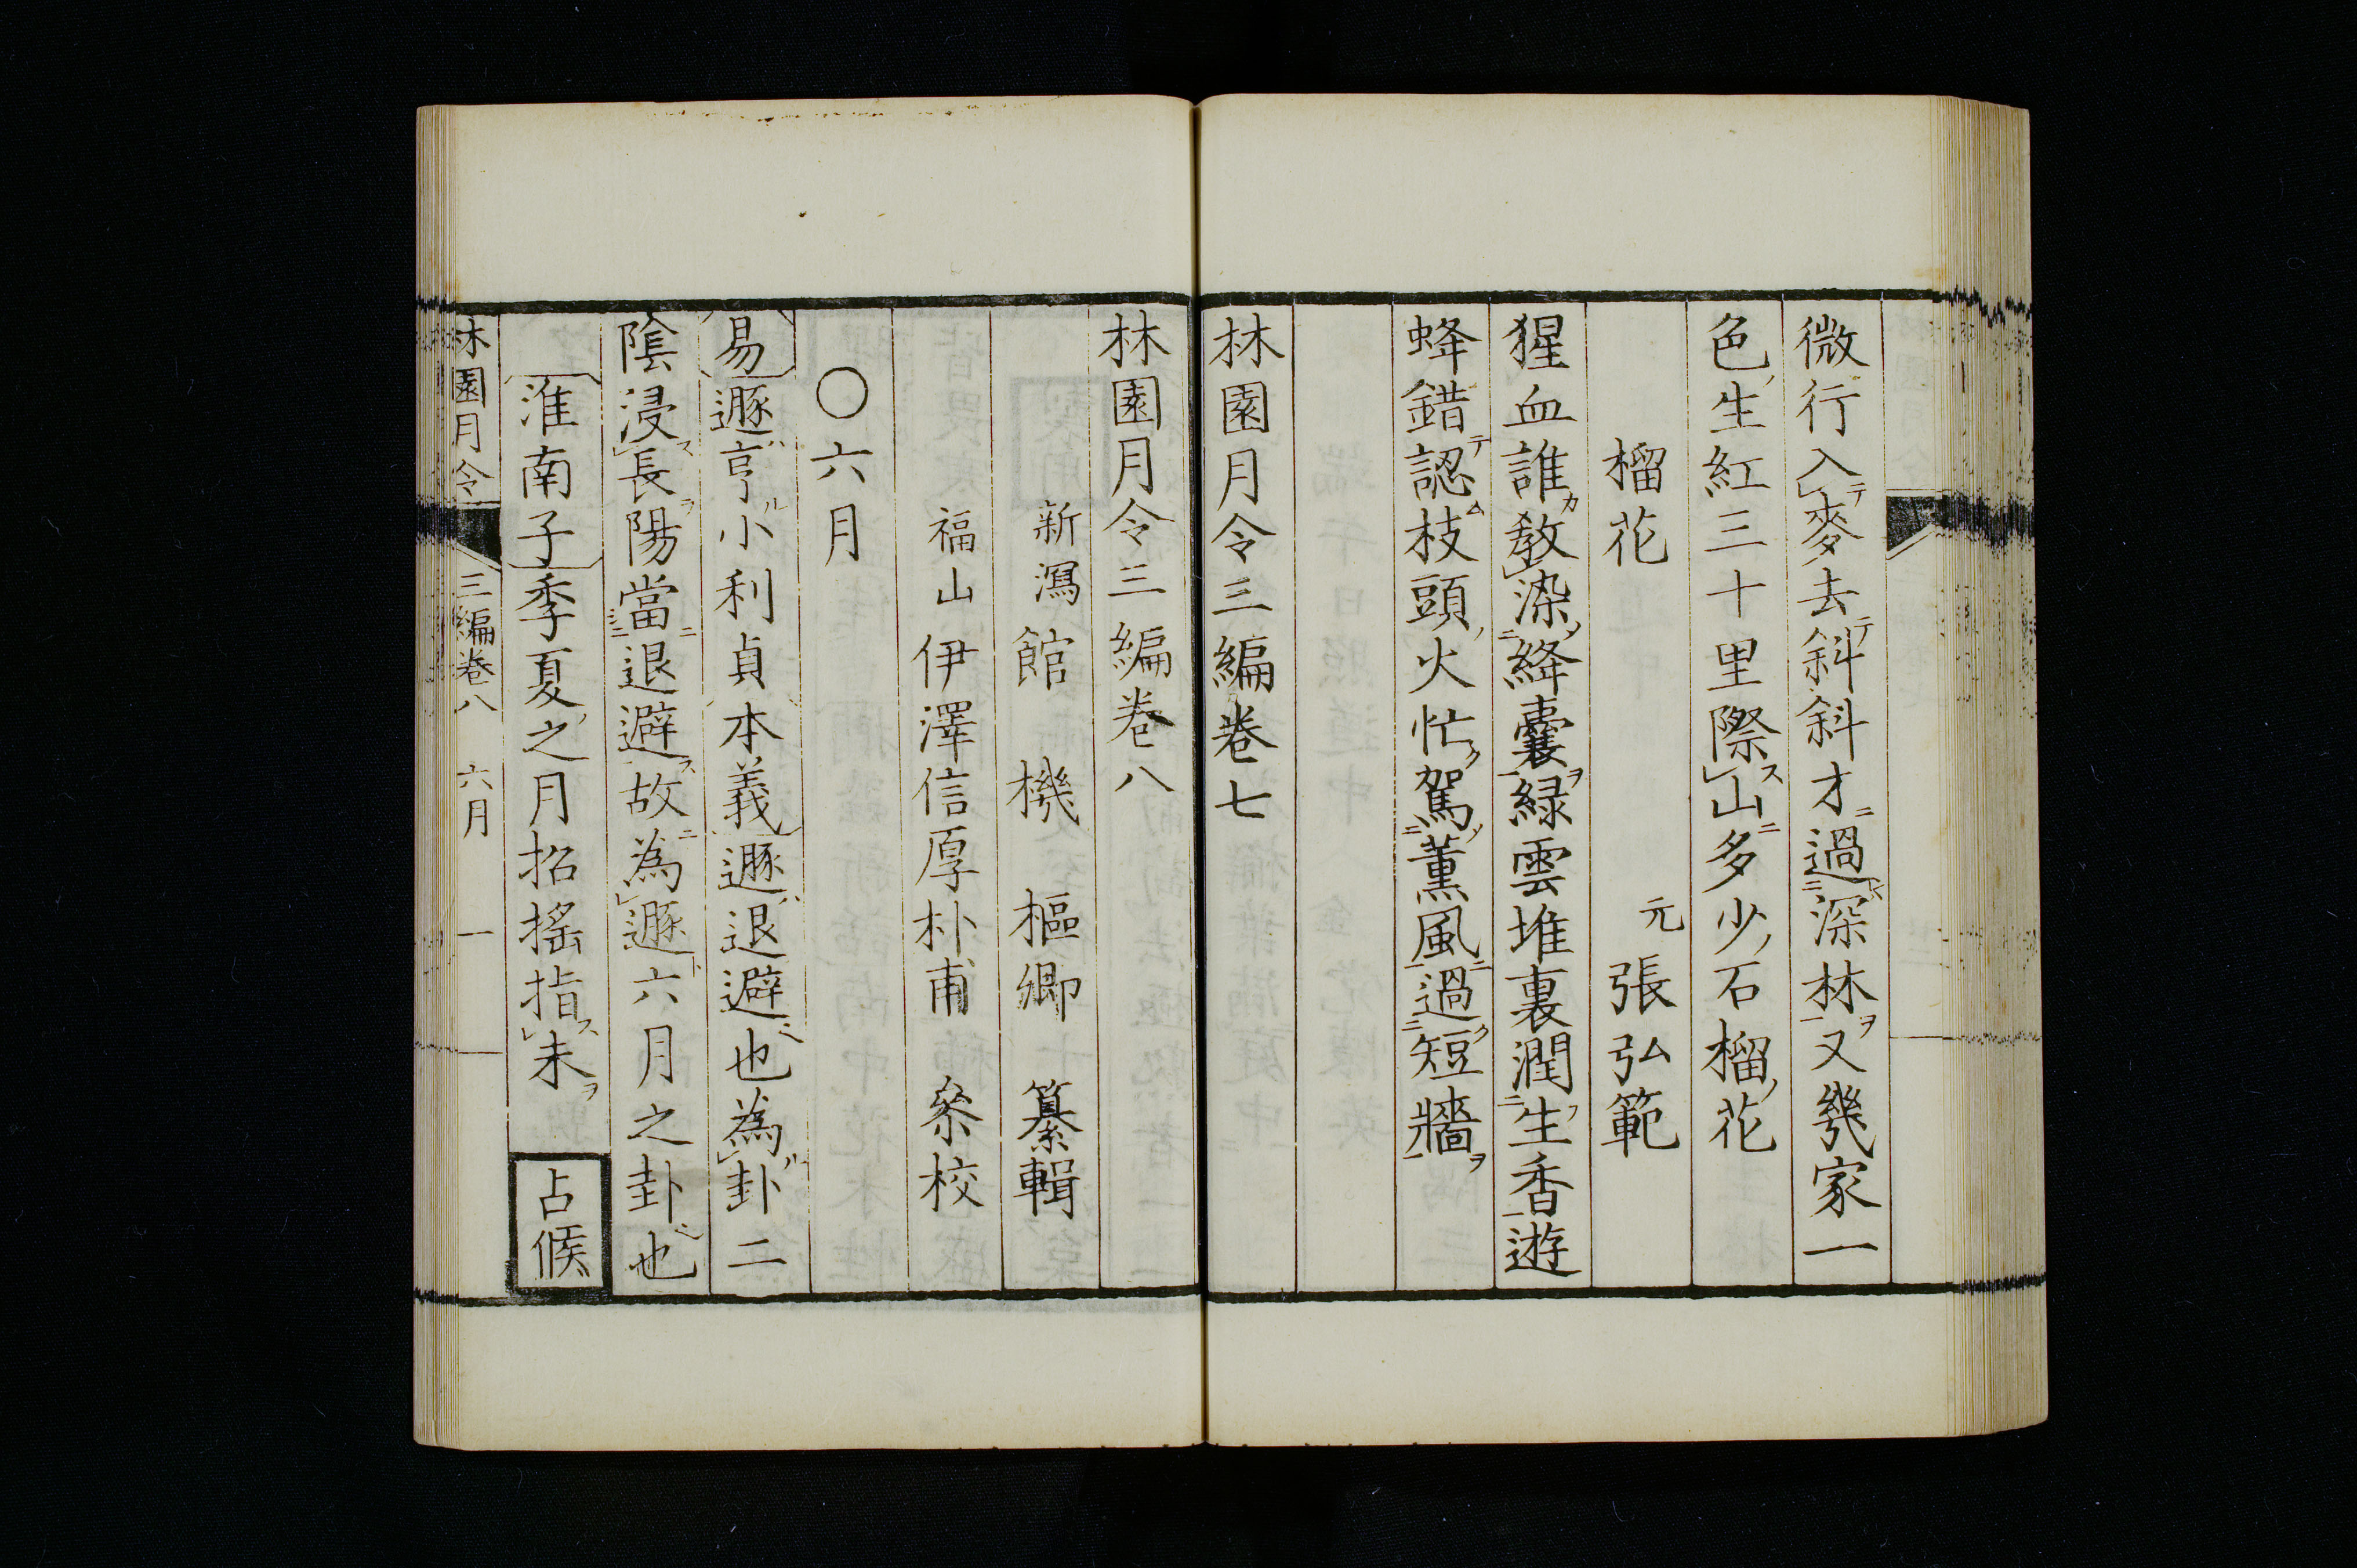 微行入麥去斜斜才過深林又幾家一
色生紅三十里際山多少石榴花
榴花　元　張弘範
猩血誰教染絳囊緑雲堆裏潤生香遊
蜂錯認枝頭火忙駕薫風過短牆
林園月令三編巻七
林園月令三編巻八
新瀉　館　機　樞卿　纂輯
福山　伊澤信厚朴甫　叅校
〇六月
易遯亨小利貞本義遯退避也為卦二
陰浸長陽當退避故為遯六月之卦也
淮南子季夏之月招搖指未　占候
林園月令　三編巻八　六月　一